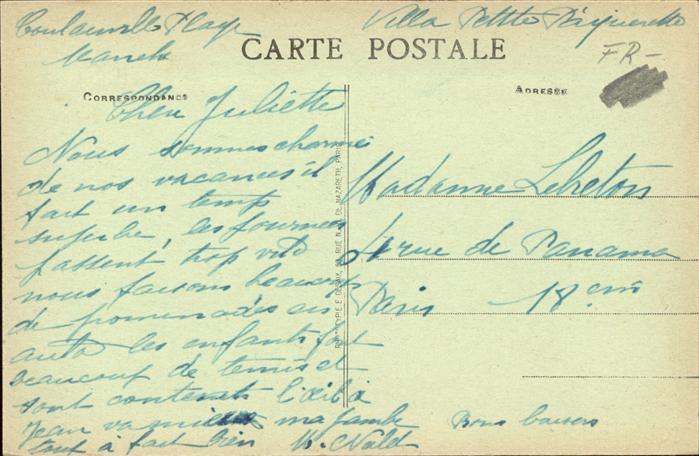 Coutainville Plage
Manche
Villa Petite Pâquerette
CARTE POSTALE
FR-
CORRESPONDANCE
ADRESSE
Chère Juliette
Nous sommes charmés
de nos vacances il
fait un temps
superbe, les journées
passent trop vite
nous faisons beaucoup
de promenades en
auto les enfants font
beaucoup de tennis et
sont contents l'œil à
Jean va mieux ma jambe
tout à fait bien
Madame Lebreton
rue de Panama
Paris 18 em
Bons baisers